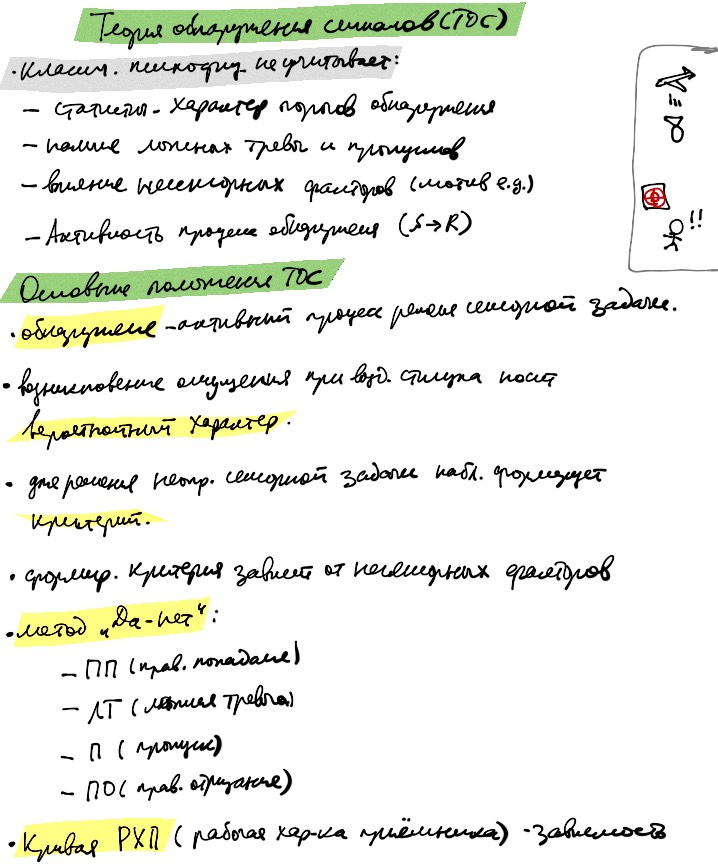 Теория обнаружения сигналов (ТОС)
• Классич. психофиз. не учитывает:
— статисти. характер порогов обнаружения
— наличие ложных тревог и пропусков
— влияние несенсорных факторов (мотив e.g.)
— Активность процесса обнаружения (S→R)
!!
Основные положения ТОС
• обнаружение – активный процесс решения сенсорной задачи.
• возникновение ощущения при возд. стимула носит
вероятностный характер.
• для решения неопр. сенсорной задачи набл. формирует
критерий.
• формир. критерия зависит от несенсорных факторов
• метод „Да-нет“:
— ПП (прав. попадание)
— ЛТ (ложная тревога)
— П (пропуск)
— ПО (прав. отрицание)
• Кривая РХП (рабочая хар-ка приёмника) - зависимость